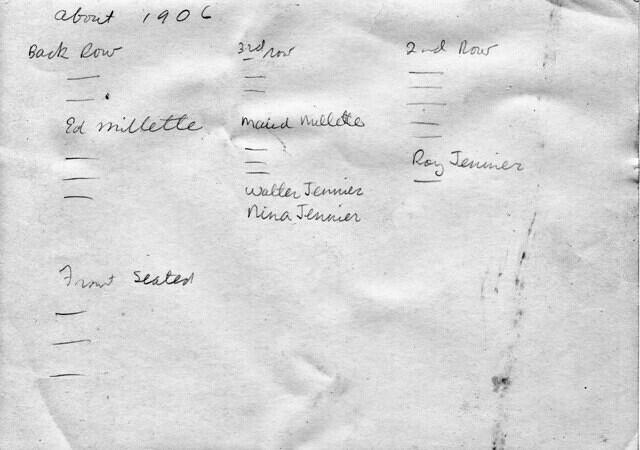 about 1906
Back Row
—
—
Ed Millette
—
—
—
3rd row
—
—
—
Maud Millette
—
—
—
Walter Jennier
Nina Jennier
2nd Row
—
—
—
—
—
Roy Jennier
—
Front Seated
—
—
—